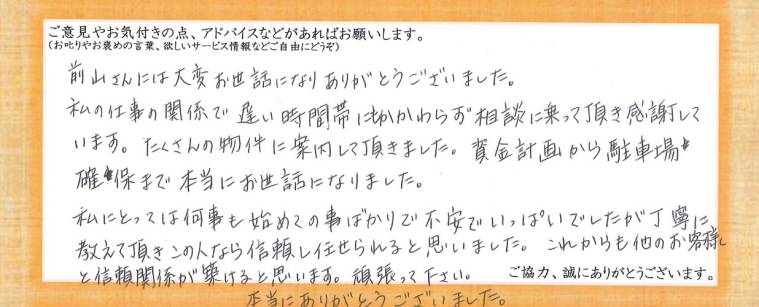 ご意見やお気付きの点、アドバイスなどがあればお願いします。
(お叱りやお褒めの言葉、欲しいサービス情報などご自由にどうぞ)
前山さんには大変お世話になりありがとうございました。
私の仕事の関係で遅い時間帯にもかかわらず相談に乗って頂き感謝して
います。たくさんの物件に案内して頂きました。資金計画から駐車場
確保まで本当にお世話になりました。
私にとっては何事も始めての事ばかりで不安でいっぱいでしたが丁寧に
教えて頂きこの人なら信頼し任せられると思いました。これからも他のお客様
と信頼関係が築けると思います。頑張って下さい。
ご協力、誠にありがとうございます。
本当にありがとうございました。